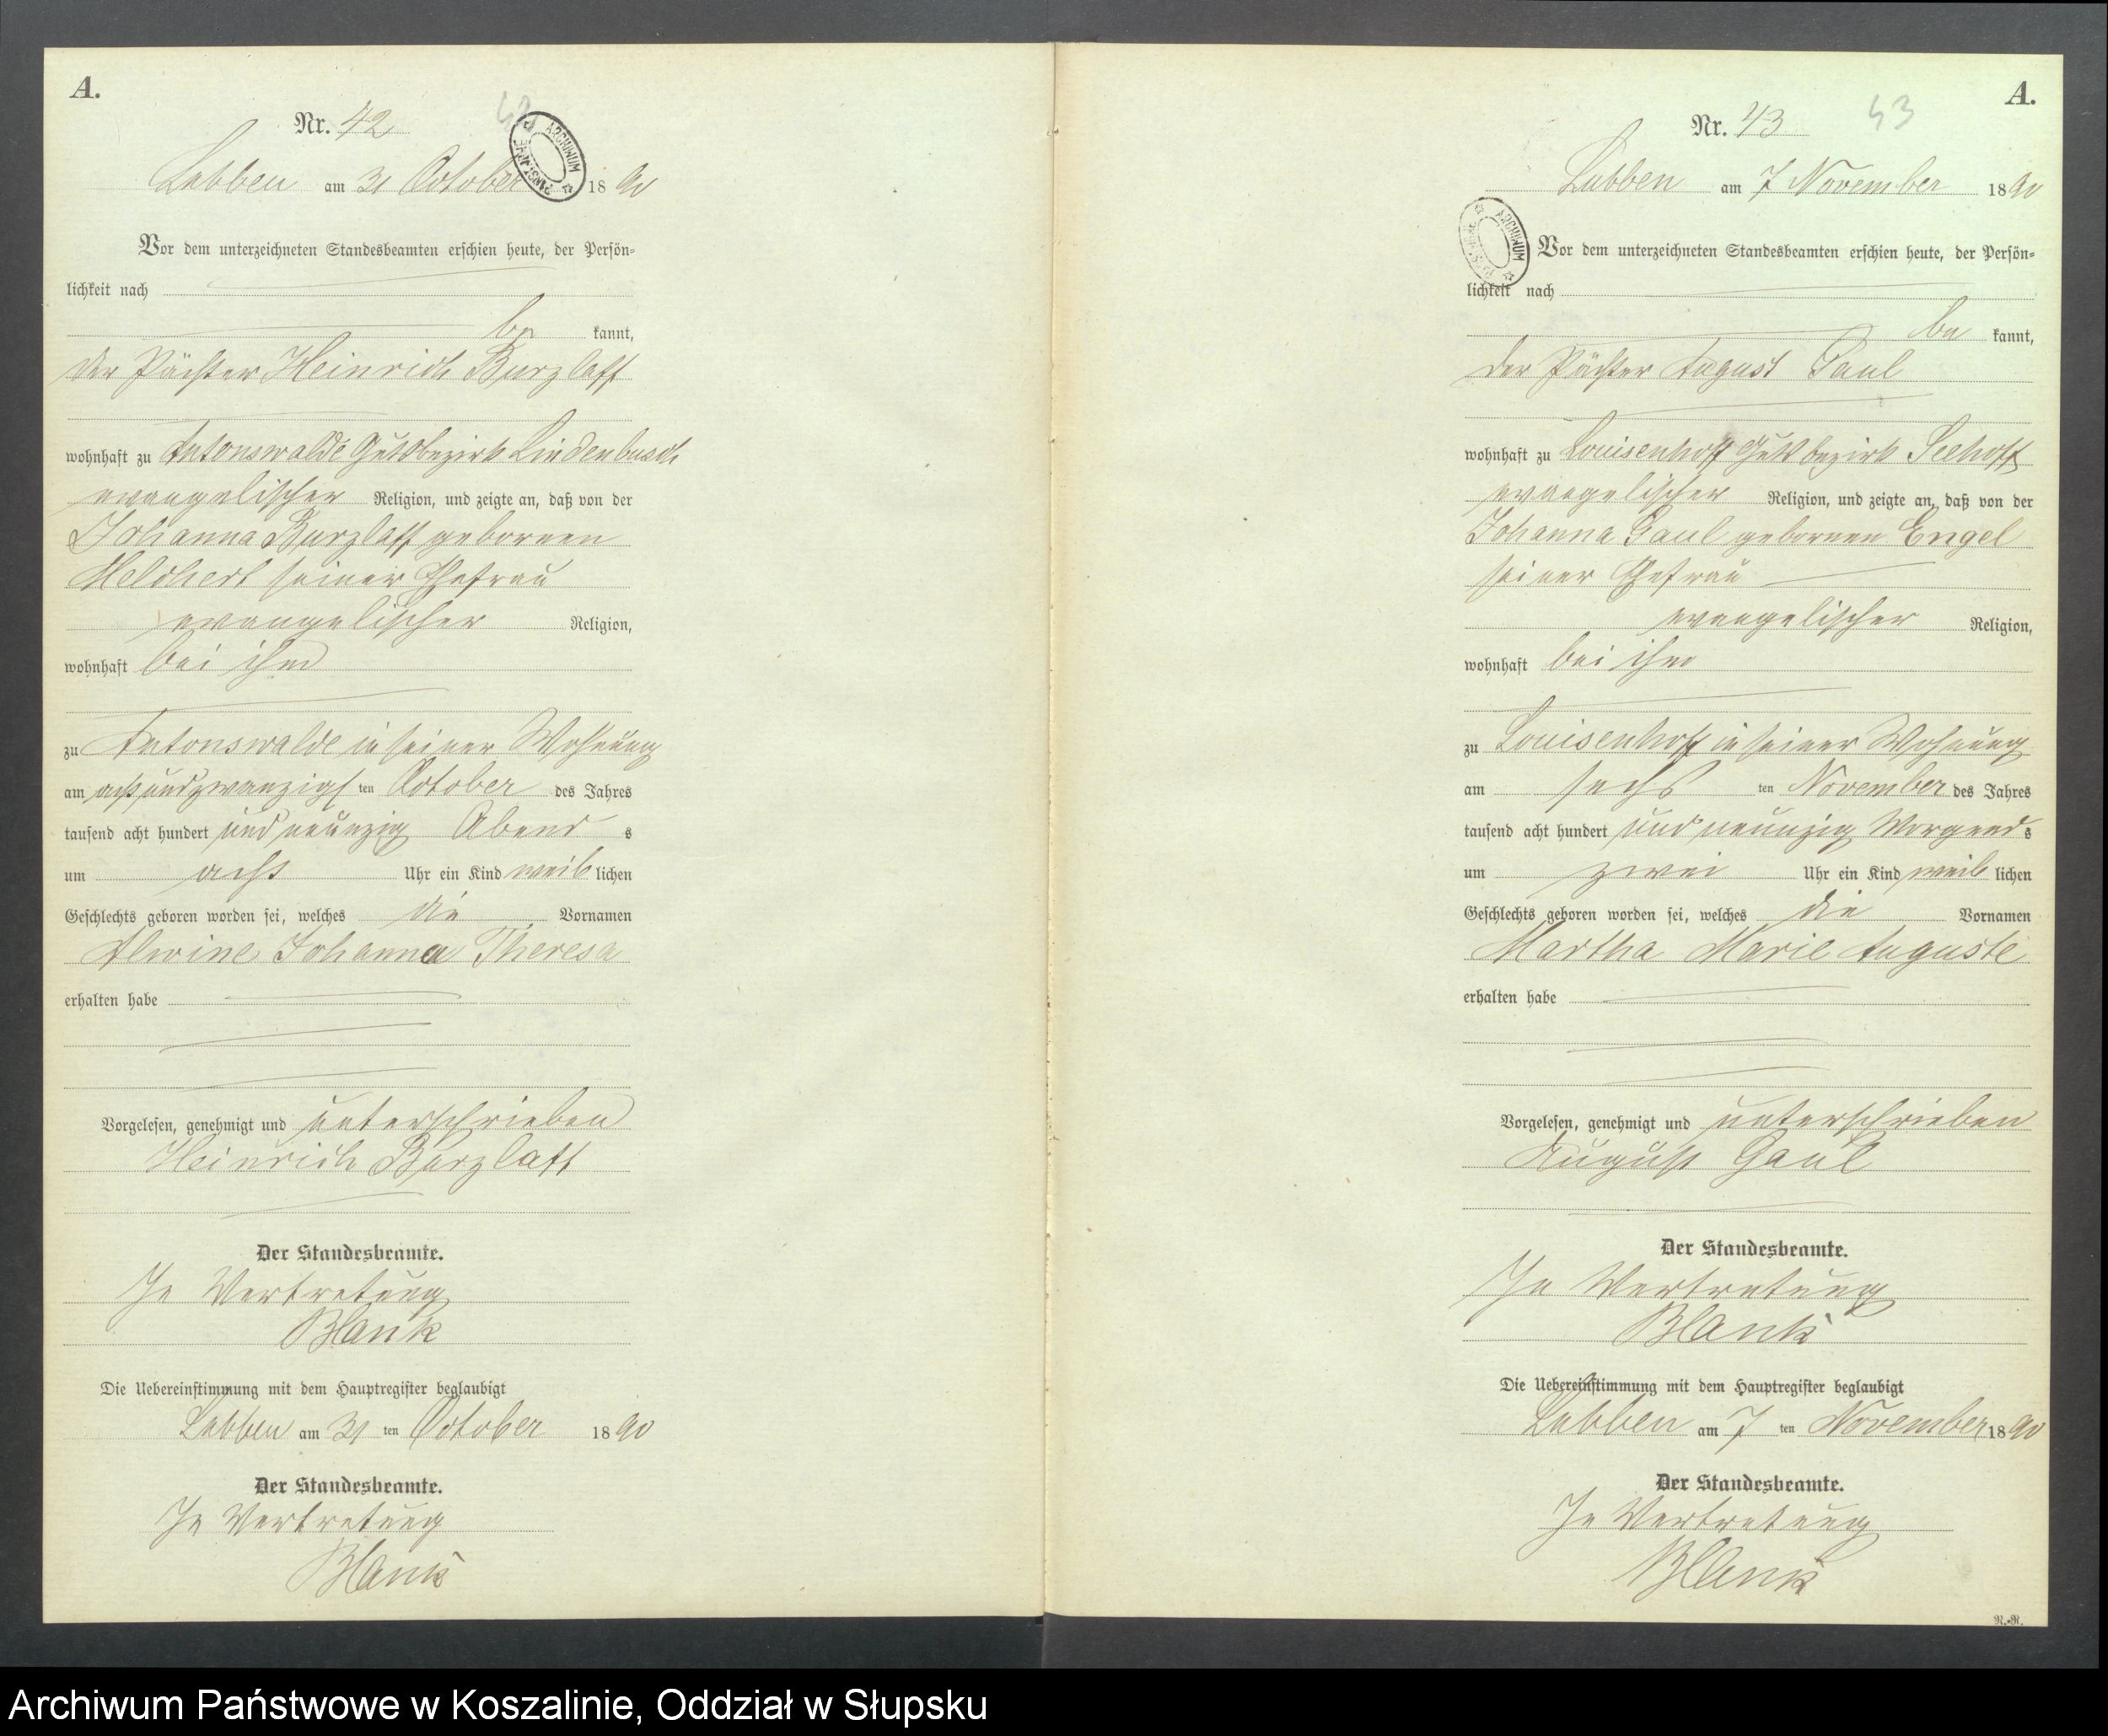 A.
Nr. 42
42
ARCHIWUM PAŃSTWOWE
Labben am 31 October 1890
Vor dem unterzeichneten Standesbeamten erschien heute, der Persön=
lichkeit nach
be kannt,
der Pächter Heinrich Burzlaff
wohnhaft zu Antonswalde Gutsbezirk Lindenbusch
evangelischer Religion, und zeigte an, daß von der
Johanna Burzlaff geborenen
Melchert seiner Ehefrau
evangelischer Religion,
wohnhaft bei ihm
zu Antonswalde in seiner Wohnung
am achtundzwanzigsten October des Jahres
tausend acht hundert und neunzig Abends
um acht Uhr ein Kind weiblichen
Geschlechts geboren worden sei, welches die Vornamen
Alwine Johanna Theresa
erhalten habe
Vorgelesen, genehmigt und unterschrieben
Heinrich Burzlaff
Der Standesbeamte.
In Vertretung
Blank
Die Uebereinstimmung mit dem Hauptregister beglaubigt
Labben am 31 ten October 1890
Der Standesbeamte.
In Vertretung
Blank
A.
Nr. 43
43
ARCHIWUM PAŃSTWOWE
Labben am 7 November 1890
Vor dem unterzeichneten Standesbeamten erschien heute, der Persön=
lichkeit nach
be kannt,
der Pächter August Gaul
wohnhaft zu Louisenhoff Gutsbezirk Seehoff
evangelischer Religion, und zeigte an, daß von der
Johanna Gaul geborenen Engel
seiner Ehefrau
evangelischer Religion,
wohnhaft bei ihm
zu Louisenhoff in seiner Wohnung
am sechsten November des Jahres
tausend acht hundert und neunzig Morgends
um zwei Uhr ein Kind weiblichen
Geschlechts geboren worden sei, welches die Vornamen
Martha Marie Auguste
erhalten habe
Vorgelesen, genehmigt und unterschrieben
August Gaul
Der Standesbeamte.
In Vertretung
Blank
Die Uebereinstimmung mit dem Hauptregister beglaubigt
Labben am 7 ten November 1890
Der Standesbeamte.
In Vertretung
Blank
R.-R.
Archiwum Państwowe w Koszalinie, Oddział w Słupsku